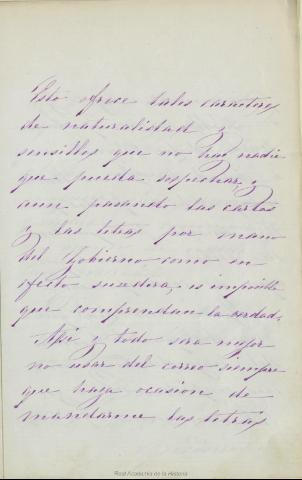 Esto ofrece tales caracteres
de naturalidad y
sencillez que no hay nadie
que pueda sospechar, y
aun pasando las cartas
y las letras por mano
del Gobierno como en
efecto sucedera, es imposible
que comprendan la verdad.
Asi y todo sera mejor
no usar del correo siempre
que haya ocasion de
mandarme las letras
Real Academia de la Historia